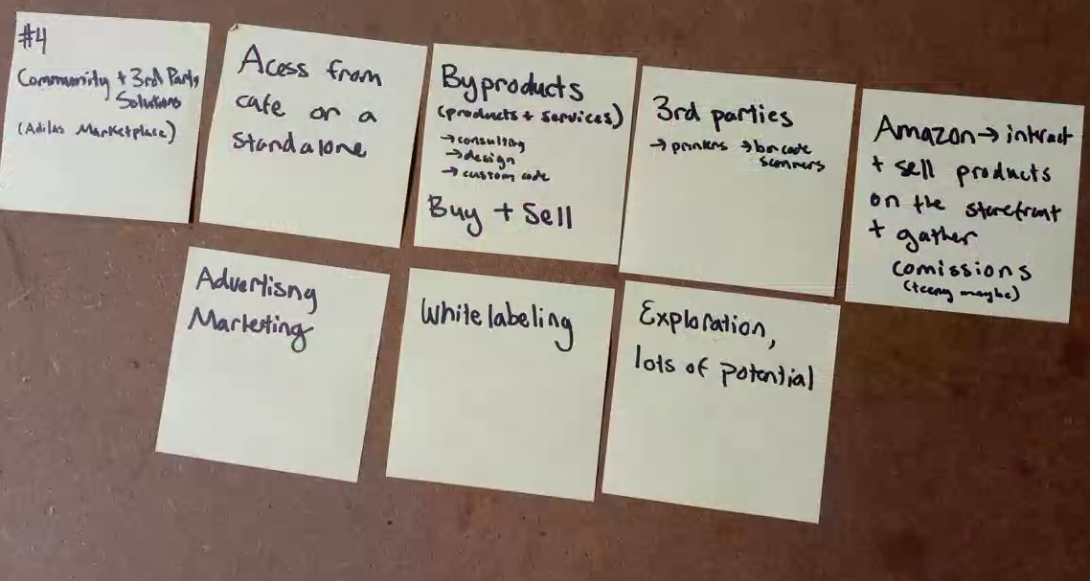 #4
Community + 3rd Party
Solutions
(Adilas Marketplace)
Acess from
cafe or a
standalone
Byproducts
(products + services)
→ consulting
→ design
→ custom code
Buy + Sell
3rd parties
→ printers → bar code
scanners
Amazon → interact
+ sell products
on the storefront
+ gather
comissions
(teeny maybe)
Advertisng
Marketing
White labeling
Exploration,
lots of potential